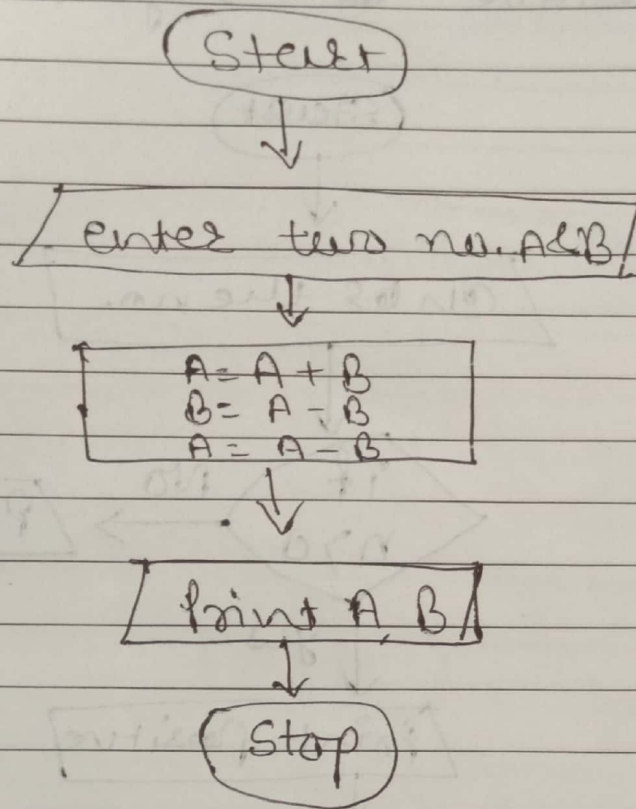 Start
enter two no. A&B
A = A + B
B = A - B
A = A - B
Print A, B
Stop